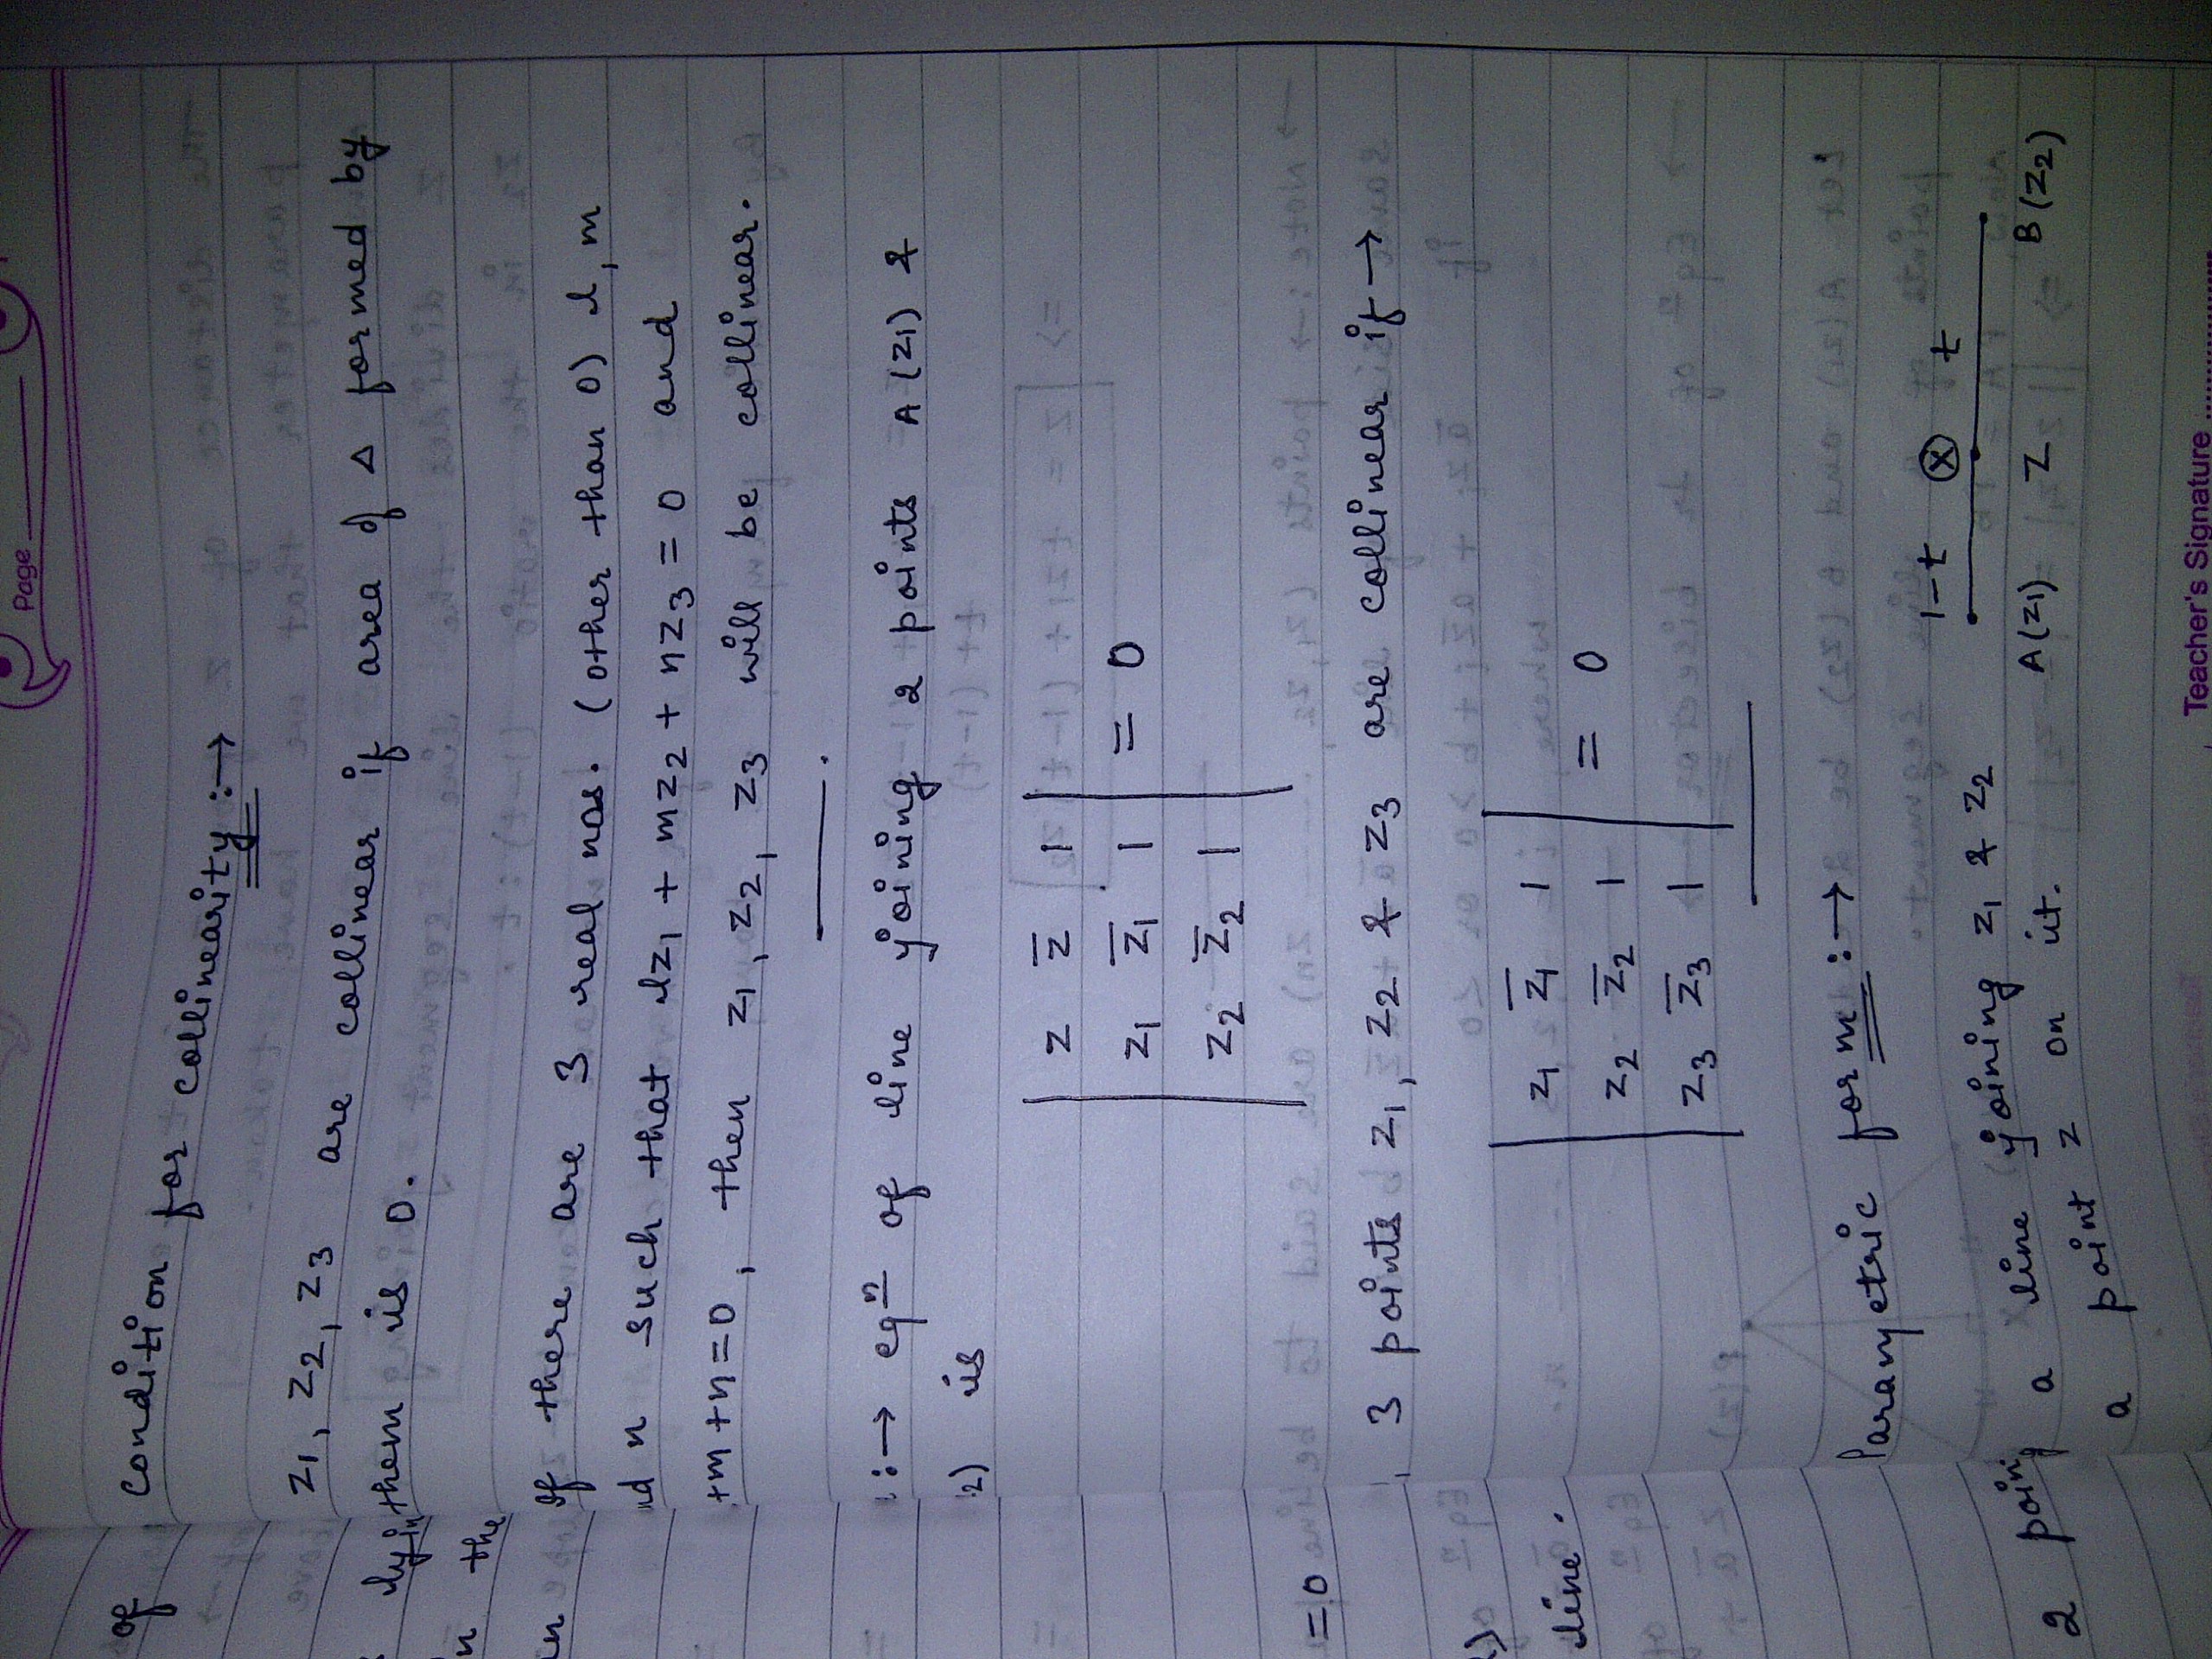 Page
of
condition for collinearity :→
z1, z2, z3 are collinear if area of Δ formed by
them is 0.
lyin
n the
If there are 3 real nos. (other than 0) l, m
nd n such that lz1 + mz2 + nz3 = 0 and
+m +n=0, then z1, z2, z3 will be collinear.
:→ eqn of line joining 2 points A(z1) &
2) is
| z z̅ 1 |
| z1 z̅1 1 | = 0
| z2 z̅2 1 |
=0
3 points z1, z2 & z3 are collinear if →
| z1 z̅1 1 |
| z2 z̅2 1 | = 0
| z3 z̅3 1 |
line.
Parametric form :→
1-t ⊗ t
A(z1) z B(z2)
a line joining z1 & z2
a point z on it.
2 poin
Teacher's Signature ..................